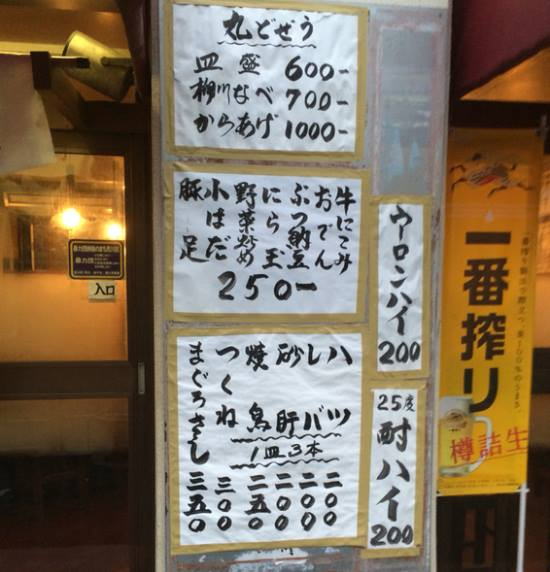 丸どぜう
皿盛 600-
柳川なべ 700-
からあげ 1000-
牛にこみ
おでん
ぶつ納豆
にら玉
野菜炒め
小はだ
豚足
250-
ハツ 二〇〇
レバ 二〇〇
砂肝 二〇〇
焼鳥 二五〇
つくね 三〇〇
まぐろさし 三五〇
1皿3本
ウーロンハイ
200
25度
酎ハイ
200
一番搾り
樽詰生
入口